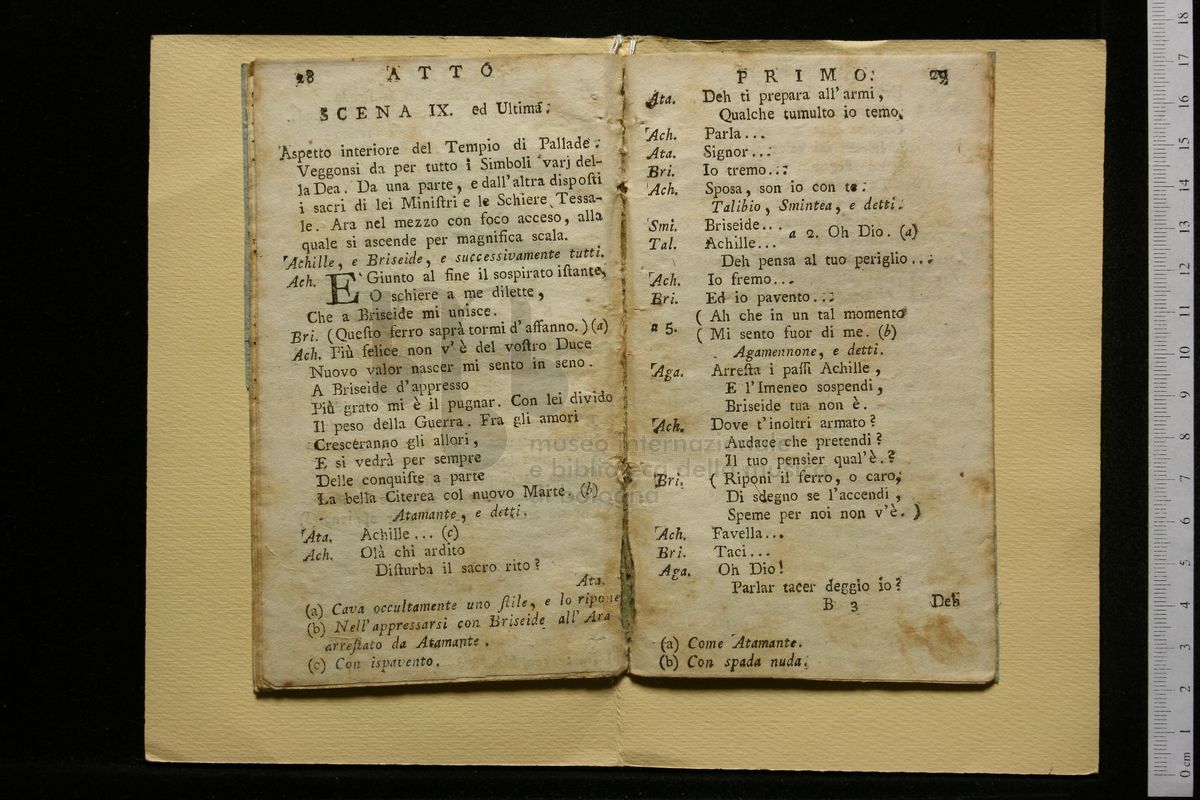 28 ATTO
SCENA IX. ed Ultima.
Aspetto interiore del Tempio di Pallade.
Veggonsi da per tutto i Simboli varj del-
la Dea. Da una parte, e dall'altra disposti
i sacri di lei Ministri e le Schiere Tessa-
le. Ara nel mezzo con foco acceso, alla
quale si ascende per magnifica scala.
Achille, e Briseide, e successivamente tutti.
Ach. E' Giunto al fine il sospirato istante,
O schiere a me dilette,
Che a Briseide mi unisce.
Bri. (Questo ferro saprà tormi d'affanno.) (a)
Ach. Più felice non v'è del vostro Duce
Nuovo valor nascer mi sento in seno.
A Briseide d'appresso
Più grato mi è il pugnar. Con lei divido
Il peso della Guerra. Fra gli amori
Cresceranno gli allori,
E si vedrà per sempre
Delle conquiste a parte
La bella Citerea col nuovo Marte. (b)
Atamante, e detti.
Ata. Achille... (c)
Ach. Olà chi ardito
Disturba il sacro rito?
Ata.
(a) Cava occultamente uno stile, e lo ripone
(b) Nell'appressarsi con Briseide all'Ara
arrestato da Atamante.
(c) Con ispavento.
PRIMO. 29
Ata. Deh ti prepara all'armi,
Qualche tumulto io temo.
Ach. Parla...
Ata. Signor...
Bri. Io tremo...
Ach. Sposa, son io con te.
Talibio, Smintea, e detti.
Smi. Briseide...
Tal. Achille... a 2. Oh Dio. (a)
Deh pensa al tuo periglio...
Ach. Io fremo...
Bri. Ed io pavento...
a 5. ( Ah che in un tal momento
( Mi sento fuor di me. (b)
Agamennone, e detti.
Aga. Arresta i passi Achille,
E l'Imeneo sospendi,
Briseide tua non è.
Ach. Dove t'inoltri armato?
Audace che pretendi?
Il tuo pensier qual'è.?
Bri. ( Riponi il ferro, o caro,
Di sdegno se l'accendi,
Speme per noi non v'è. )
Ach. Favella...
Bri. Taci...
Aga. Oh Dio!
Parlar tacer deggio io?
B 3 Deh
(a) Come Atamante.
(b) Con spada nuda.
museo internazionale
e biblioteca della musica
di bologna
0 cm 1 2 3 4 5 6 7 8 9 10 11 12 13 14 15 16 17 18